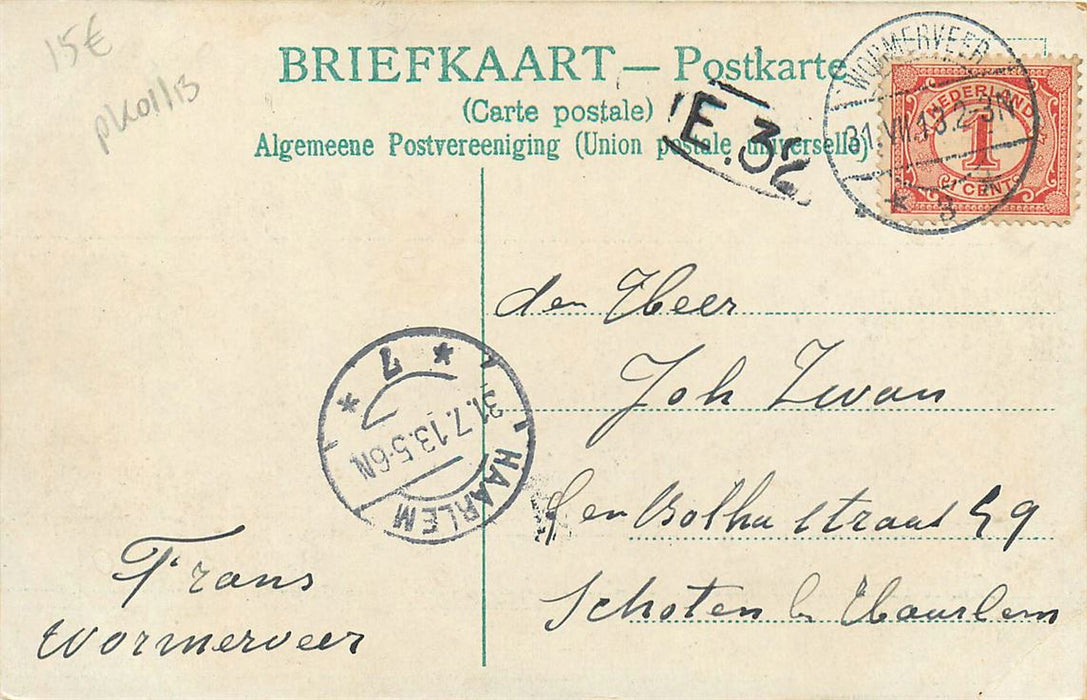 15€
pk01/13
BRIEFKAART — Postkarte
(Carte postale)
Algemeene Postvereeniging (Union postale universelle)
E.32
WORMERVEER
31.VII.13.2-3N
* 3
NEDERLAND
1
CENT
den Heer
Joh Zwan
Gen Botha straat 59
Schoten b Haarlem
* 7 *
31.7.13.5-6N
HAARLEM
Frans
Wormerveer